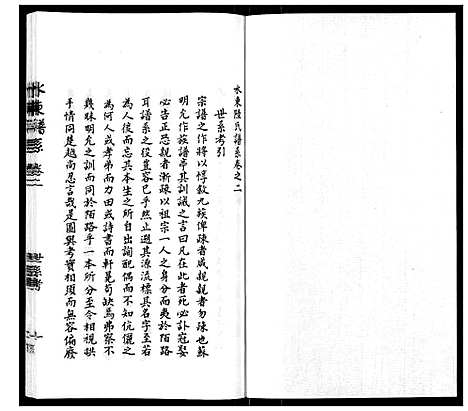 水東陸氏譜系卷之二
世系考引
宗譜之作將以惇敘九族俾疎者咸親親者勿疎也蘇
明允作族譜亭其訓誡之言曰凡在此者死必訃冠娶
必告正恐親者漸疎以祖宗一人之身分而為陌路
耳譜系之役豈容已乎然止遡其源流標其名字至若
為人後而忘其本生之所自出配偶而不知伉儷之
為何人或孝弟而力田或詩書而軒冕苟缺焉弗察不
幾昧明允之訓而同於陌路乎一本所分至令相視
手情同楚越而忍言哉是圖與考實相須而無容偏廢
水東譜系 卷二
世系考